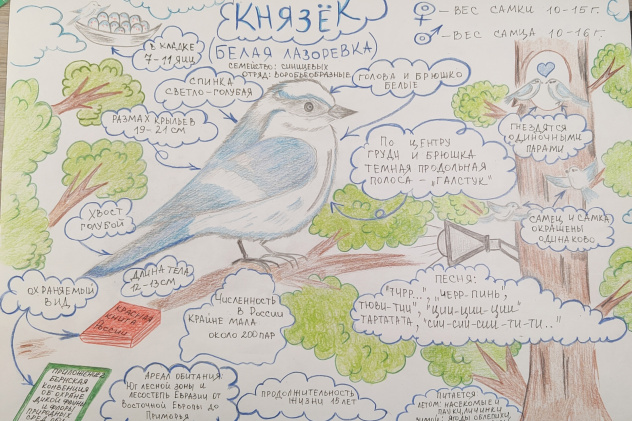 КНЯЗЁК
(БЕЛАЯ ЛАЗОРЕВКА)
СЕМЕЙСТВО: СИНИЦЕВЫХ
ОТРЯД: ВОРОБЬЕОБРАЗНЫЕ
♀ - ВЕС САМКИ 10-15 г.
♂ - ВЕС САМЦА 10-16 г.
В КЛАДКЕ
7-11 ЯИЦ
СПИНКА
СВЕТЛО-ГОЛУБАЯ
ГОЛОВА И БРЮШКО
БЕЛЫЕ
РАЗМАХ КРЫЛЬЕВ
19-21 СМ
ПО ЦЕНТРУ
ГРУДИ И БРЮШКА
ТЕМНАЯ ПРОДОЛЬНАЯ
ПОЛОСА - „ГАЛСТУК"
ГНЕЗДЯТСЯ
ОДИНОЧНЫМИ
ПАРАМИ
САМЕЦ И САМКА
ОКРАШЕНЫ
ОДИНАКОВО
ХВОСТ
ГОЛУБОЙ
ДЛИНА ТЕЛА
12-13 СМ
ОХРАНЯЕМЫЙ
ВИД
КРАСНАЯ
КНИГА
РОССИИ
ЧИСЛЕННОСТЬ
В РОССИИ
КРАЙНЕ МАЛА
ОКОЛО 200 ПАР
ПЕСНЯ:
"ТИРР...", "ЧЕРР-ПИНЬ",
ТЮВИ-ТЮИ", "ЦИИ-ЦИИ-ЦИИ"
ТАРТАТАТА", "СИИ-СИЙ-СИИ-ТИ-ТИ.."
ПРИЛОЖЕНИЕ
БЕРНСКАЯ
КОНВЕНЦИЯ
ОБ ОХРАНЕ
ДИКОЙ ФАУНЫ
И ФЛОРЫ
ПРИРОДНЫХ
АРЕАЛ ОБИТАНИЯ:
ЮГ ЛЕСНОЙ ЗОНЫ И
ЛЕСОСТЕПЬ ЕВРАЗИИ ОТ
ВОСТОЧНОЙ ЕВРОПЫ ДО
ПРИМОРЬЯ
ПРОДОЛЖИТЕЛЬНОСТЬ
ЖИЗНИ 15 ЛЕТ
ПИТАЕТСЯ
ЛЕТОМ: НАСЕКОМЫЕ И
ПАУКИ, ЛИЧИНКИ
ЗИМОЙ: ЯГОДЫ ОБЛЕПИХИ,